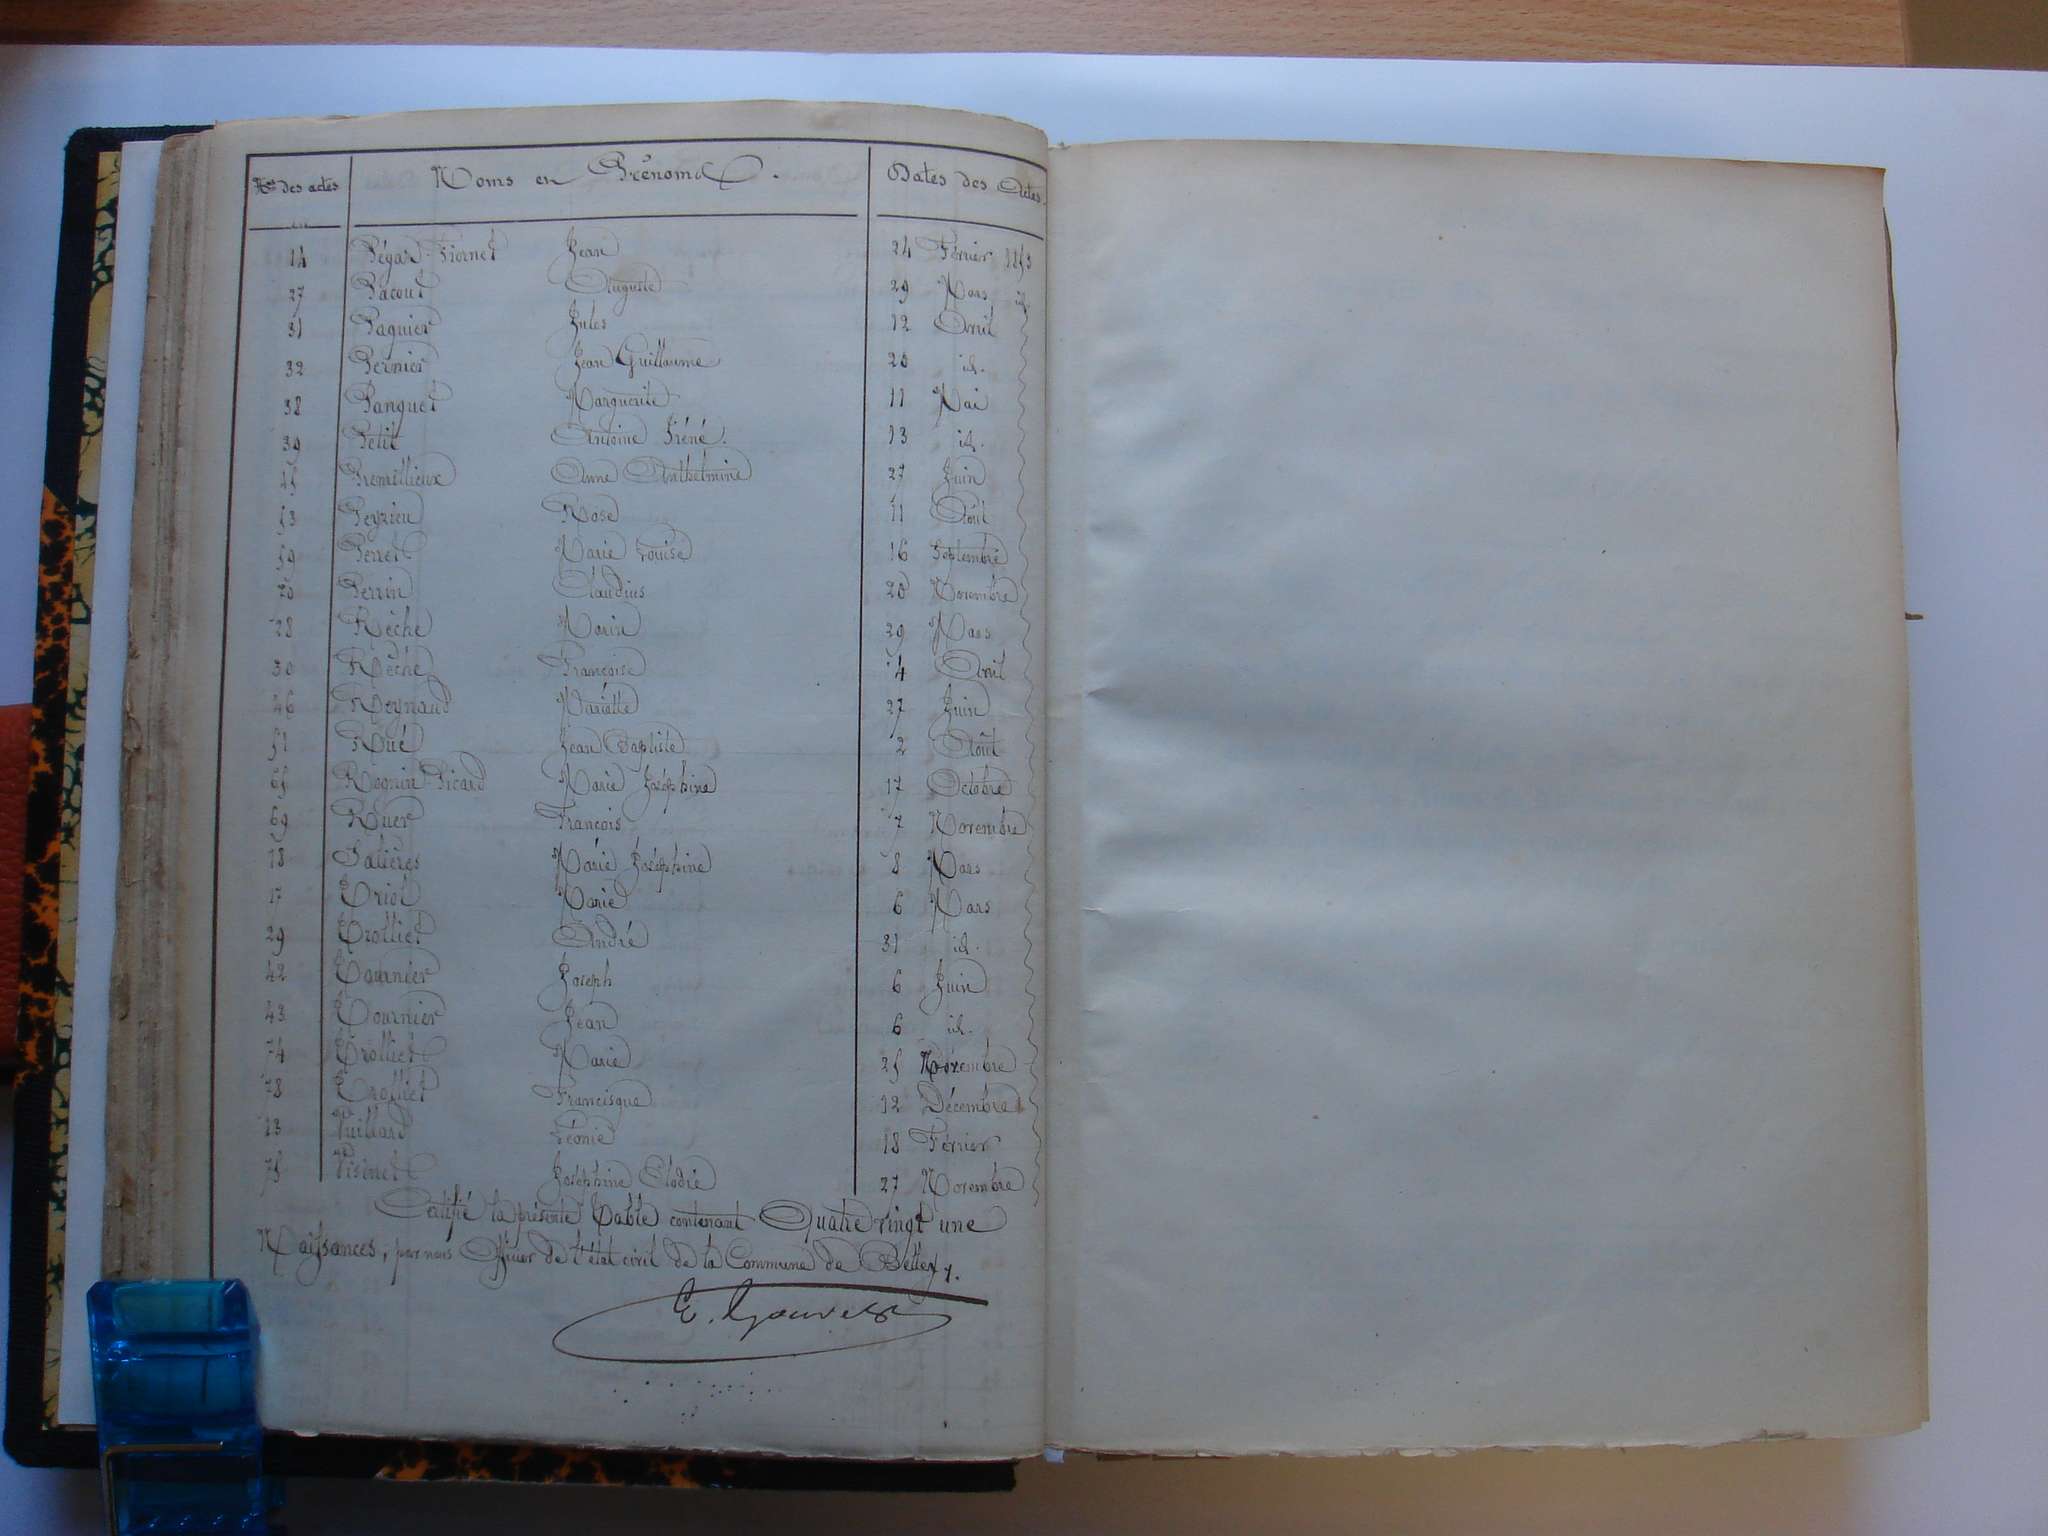 Nos des actes Noms et Prénoms. Dates des Actes.
14 Pégaz-Fiornet Jean 24 Février 1853
27 Pacout Auguste 29 Mars id.
31 Pagnier Jules 12 Avril
32 Pernier Jean Guillaume 20 id.
38 Panguet Marguerite 11 Mai
39 Petit Antoine Iréné. 13 id.
45 Premillieux Anne Anthelmine 27 Juin
53 Peyzieu Rose 11 Août
59 Perret Marie Louise 16 Septembre
70 Perrin Claudius 20 Novembre
28 Rêche Marin 29 Mars
30 Rêche Françoise 4 Avril
46 Reynaud Mariette 27 Juin
51 Roué Jean Baptiste 2 Août
65 Rognin Picard Marie Joséphine 17 Octobre
69 Ruer François 7 Novembre
18 Salières Marie Joséphine 8 Mars
17 Triol Marie 6 Mars
29 Trolliet André 31 id.
42 Tournier Joseph 6 Juin
43 Tournier Jean 6 id.
74 Trolliet Marie 25 Novembre
78 Trolliet Francisque 12 Décembre
13 Vuillard Léonie 18 Février
75 Visinet Joséphine Elodie 27 Novembre
Certifié la présente Table contenant Quatre vingt une
Naissances, par nous Officier de l'état civil de la Commune de Belley.